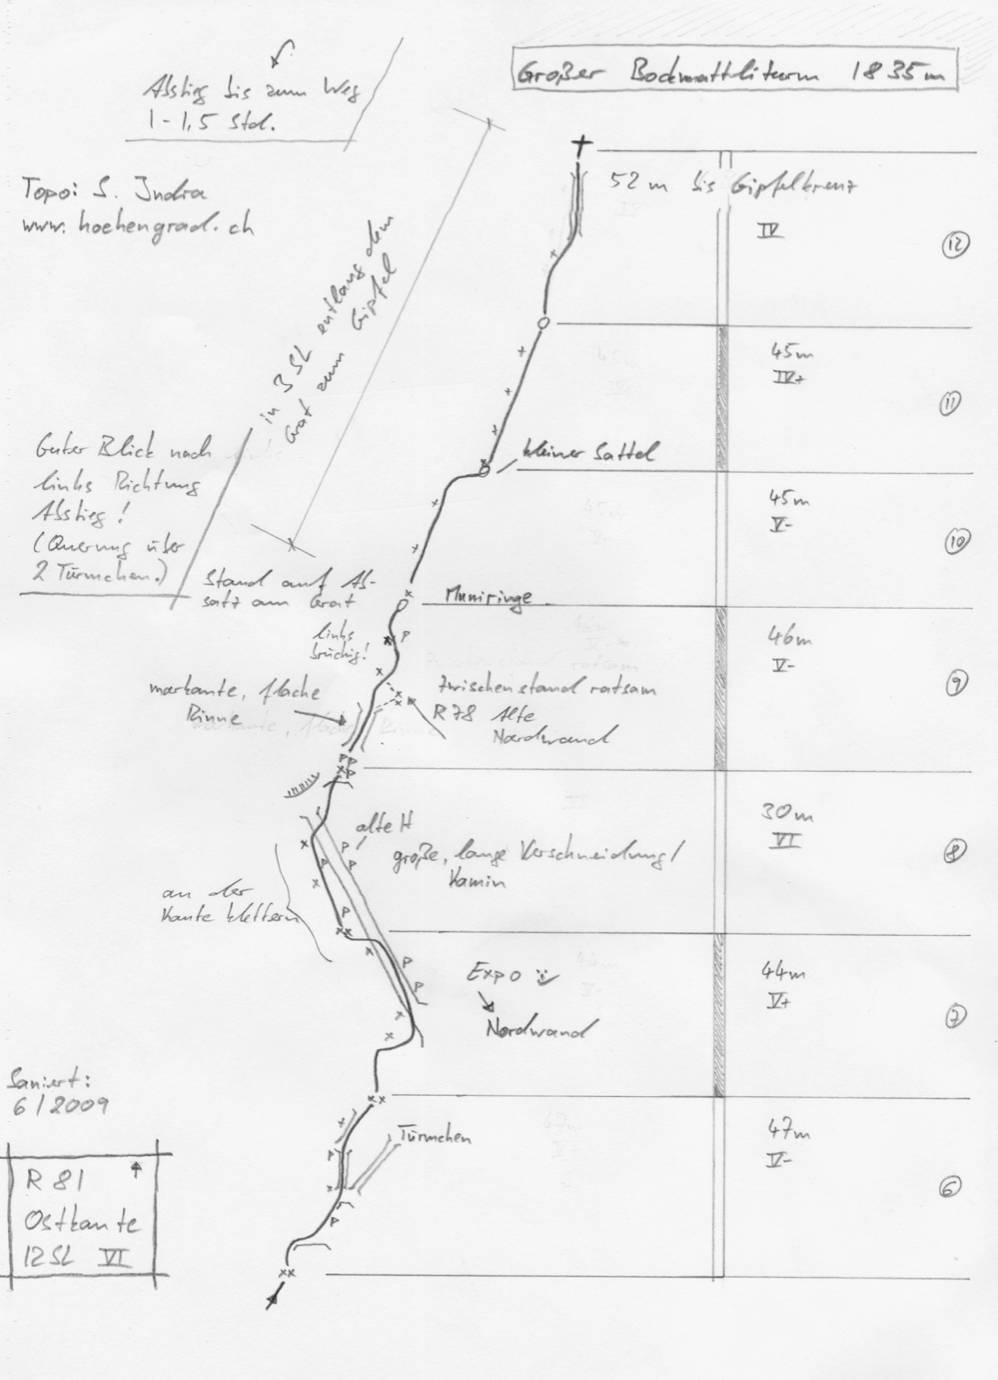 Großer Bockmattliturm 1835m
Abstieg bis zum Weg
1-1,5 Std.
Topo: S. Indra
www.hochengrad.ch
52m bis Gipfelkreuz
IV
12
in 3 SL entlang dem
Grat zum Gipfel
45m
IV+
11
Guter Blick nach
links Richtung
Abstieg!
(Querung über
2 Türmchen.)
kleiner Sattel
45m
V-
10
Stand auf Ab-
satz am Grat
Muniringe
links
brüchig!
P
46m
V-
9
markante, flache
Rinne
Zwischenstand ratsam
R78 Alte
Nordwand
30m
VI
8
alte H
große, lange Verschneidung/
Kamin
an der
Kante klettern
Expo
Nordwand
44m
V+
7
Saniert:
6/2009
Türmchen
47m
V-
6
R 81
Ostkante
12SL VI